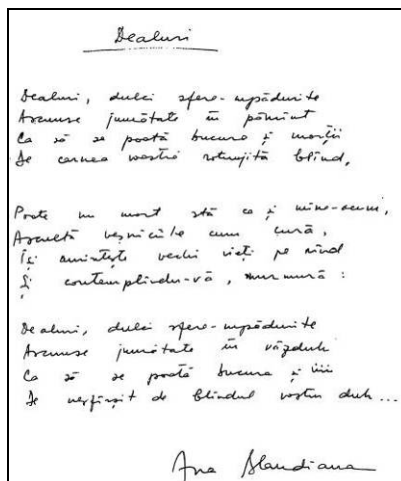 Dealuri
Dealuri, dulci sfere-mpădurite
Ascunse jumătate în pămînt
Ca să se poată bucura și morții
De carnea voastră rotunjită blînd,
Poate un mort stă ca și mine-acum,
Ascultă veșniciile cum cură,
Își amintește vechi vieți pe rînd
Și contemplîndu-vă, murmură:
Dealuri, dulci sfere-mpădurite
Ascunse jumătate în văzduh
Ca să se poată bucura și vii
De nesfîrșit de blîndul vostru duh...
Ana Blandiana